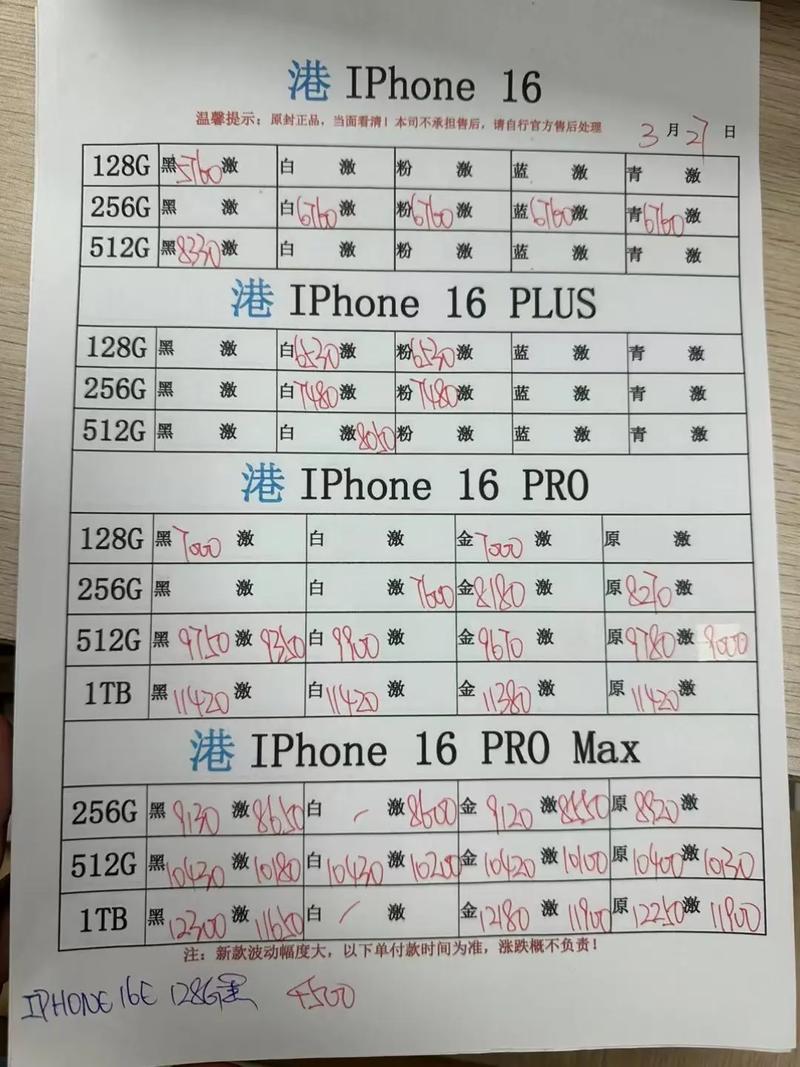 港 IPhone 16
温馨提示：原封正品，当面看清！本司不承担售后，请自行官方售后处理
3 月 27 日
128G 黑 5760 激 白 激 粉 激 蓝 激 青 激
256G 黑 激 白 6760 激 粉 6760 激 蓝 6760 激 青 6760 激
512G 黑 8330 激 白 激 粉 激 蓝 激 青 激
港 IPhone 16 PLUS
128G 黑 激 白 6530 激 粉 6530 激 蓝 激 青 激
256G 黑 激 白 7480 激 粉 7480 激 蓝 激 青 激
512G 黑 激 白 激 8050 粉 激 蓝 激 青 激
港 IPhone 16 PRO
128G 黑 7000 激 白 激 金 7000 激 原 激
256G 黑 激 白 激 7600 金 8180 激 原 8270 激
512G 黑 9750 激 9350 白 9900 激 金 9670 激 原 9780 激 9000
1TB 黑 11420 激 白 11420 激 金 11380 激 原 11420 激
港 IPhone 16 PRO Max
256G 黑 9130 激 8650 白 / 激 8600 金 9120 激 8550 原 8920 激
512G 黑 10430 激 10180 白 10430 激 10200 金 10420 激 10100 原 10400 激 10130
1TB 黑 12300 激 11650 白 / 激 金 12180 激 11900 原 12250 激 11900
注：新款波动幅度大，以下单付款时间为准，涨跌概不负责！
IPHONE 16E 128G黑 4500